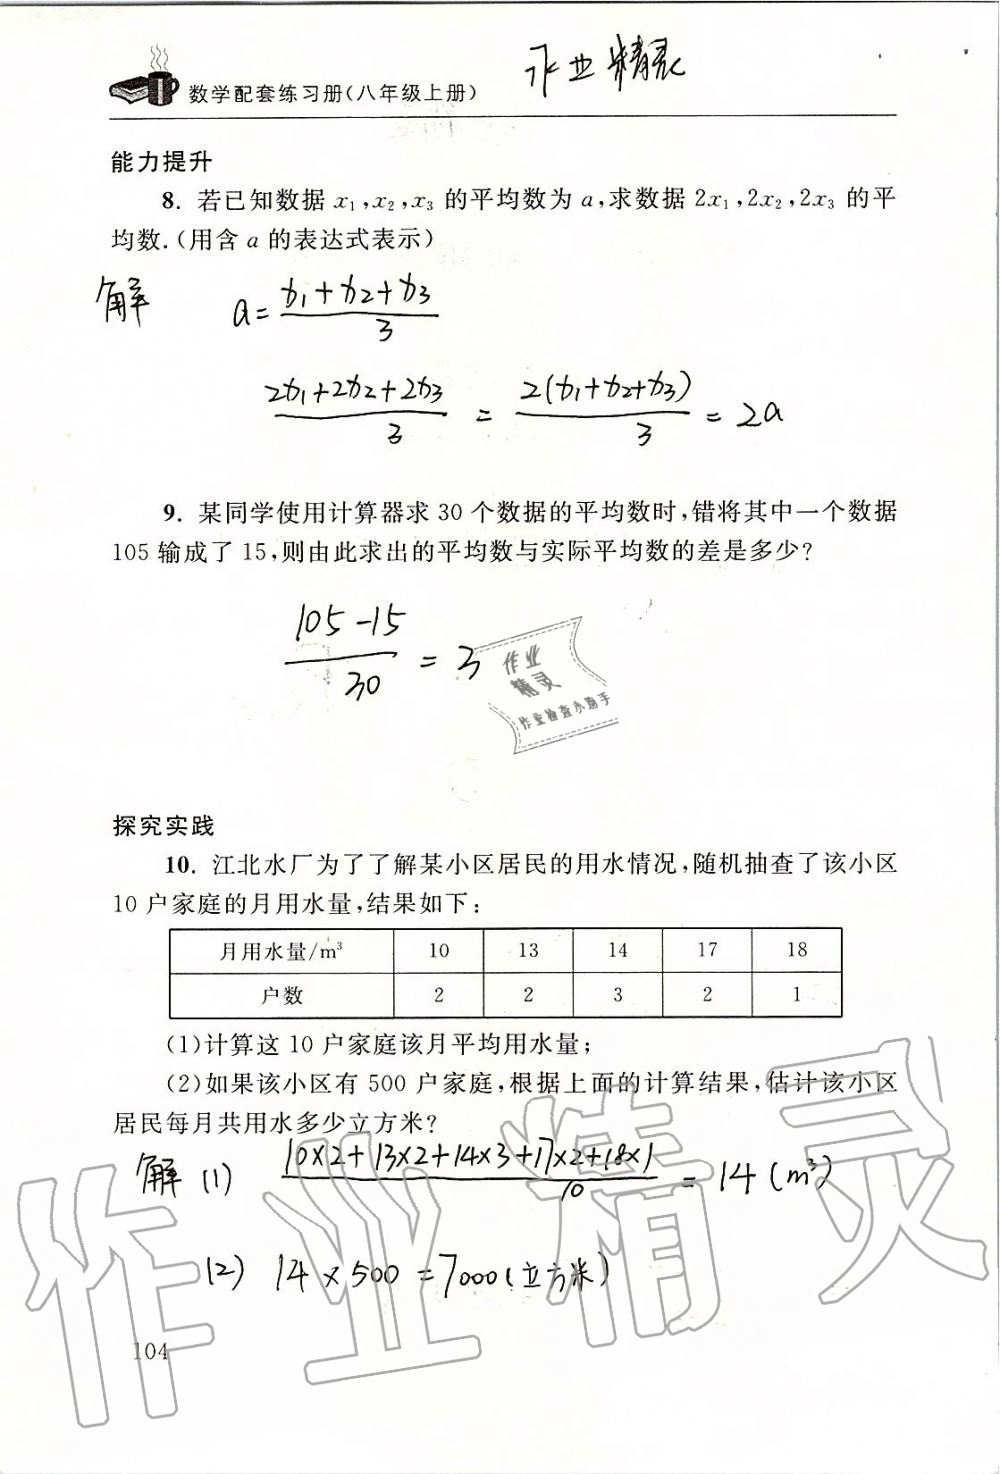 作业精灵
数学配套练习册(八年级上册)
能力提升
8. 若已知数据 x₁,x₂,x₃ 的平均数为 a,求数据 2x₁,2x₂,2x₃ 的平
均数.(用含 a 的表达式表示)
解 a=(x₁+x₂+x₃)/3
(2x₁+2x₂+2x₃)/3 = 2(x₁+x₂+x₃)/3 = 2a
9. 某同学使用计算器求 30 个数据的平均数时,错将其中一个数据
105 输成了 15,则由此求出的平均数与实际平均数的差是多少?
(105-15)/30 = 3
作业
精灵
作业检查小助手
探究实践
10. 江北水厂为了了解某小区居民的用水情况,随机抽查了该小区
10 户家庭的月用水量,结果如下:
月用水量/m³ 10 13 14 17 18
户数 2 2 3 2 1
(1)计算这 10 户家庭该月平均用水量;
(2)如果该小区有 500 户家庭,根据上面的计算结果,估计该小区
居民每月共用水多少立方米?
解 (1) (10×2+13×2+14×3+17×2+18×1)/10 = 14(m³)
(2) 14×500=7000(立方米)
作业精灵
104